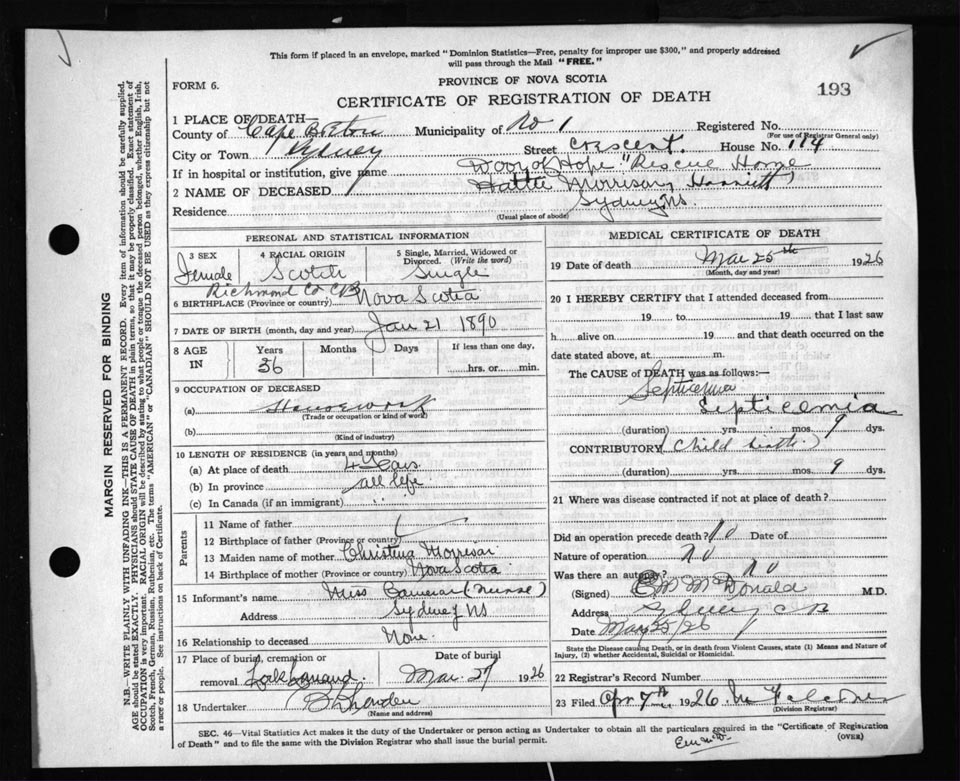 This form if placed in an envelope, marked "Dominion Statistics—Free, penalty for improper use $300," and properly addressed
will pass through the Mail "FREE."
FORM 6.
PROVINCE OF NOVA SCOTIA
193
CERTIFICATE OF REGISTRATION OF DEATH
1 PLACE OF DEATH—
County of Cape Breton Municipality of No 1 Registered No.
(For use of Registrar General only)
City or Town Sydney Street Crescent. House No. 114
If in hospital or institution, give name Door of Hope "Rescue Home
2 NAME OF DECEASED Hattie Morrison, Harriett)
Residence Sydney NS.
(Usual place of abode)
PERSONAL AND STATISTICAL INFORMATION
3 SEX 4 RACIAL ORIGIN 5 Single, Married, Widowed or Divorced. (Write the word)
Female Scotch Single
Richmond Co CB
6 BIRTHPLACE (Province or country) Nova Scotia
7 DATE OF BIRTH (month, day and year) Jan 21 1890
8 AGE IN Years Months Days If less than one day,
36 hrs. or min.
9 OCCUPATION OF DECEASED
(a) Housework
(Trade or occupation or kind of work)
(b)
(Kind of industry)
10 LENGTH OF RESIDENCE (in years and months)
(a) At place of death 4 Years
(b) In province all life
(c) In Canada (if an immigrant)
Parents
11 Name of father
12 Birthplace of father (Province or country)
13 Maiden name of mother Christina Morrison
14 Birthplace of mother (Province or country) Nova Scotia
15 Informant's name Miss Cameron (Nurse)
Address Sydney NS
16 Relationship to deceased None
17 Place of burial, cremation or Date of burial
removal Mar. 27 1926
18 Undertaker
(Name and address)
MEDICAL CERTIFICATE OF DEATH
19 Date of death Mar 25th 1926
(Month, day and year)
20 I HEREBY CERTIFY that I attended deceased from
19 to 19 that I last saw
h alive on 19 and that death occurred on the
date stated above, at m.
The CAUSE of DEATH was as follows:—
Septicemia
Septicemia
(duration) yrs. mos. 9 dys.
CONTRIBUTORY (Child birth.)
(duration) yrs. mos. 9 dys.
21 Where was disease contracted if not at place of death?
Did an operation precede death? No Date of
Nature of operation No
Was there an autopsy? No
(Signed) McDonald M.D.
Address Sydney CB
Date Mar 25/26
State the Disease causing Death, or in death from Violent Causes, state (1) Means and Nature of
Injury, (2) whether Accidental, Suicidal or Homicidal.
22 Registrar's Record Number
23 Filed Apr 7th 1926
(Division Registrar)
SEC. 46—Vital Statistics Act makes it the duty of the Undertaker or person acting as Undertaker to obtain all the particulars required in the "Certificate of Registration
of Death" and to file the same with the Division Registrar who shall issue the burial permit.
(OVER)
MARGIN RESERVED FOR BINDING
N.B.—WRITE PLAINLY WITH UNFADING INK—THIS IS A PERMANENT RECORD. Every item of information should be carefully supplied.
AGE should be stated EXACTLY. PHYSICIANS should STATE CAUSE OF DEATH in plain terms, so that it may be properly classified. Exact statement of
OCCUPATION is very important. RACIAL ORIGIN will be described by stating to what people or tongue the deceased person belonged, whether English, Irish,
Scotch, French, German, Russian, Ruthenian, etc. The terms "AMERICAN" or "CANADIAN" SHOULD NOT BE USED as they express citizenship but not
a race or people. See instructions on back of Certificate.